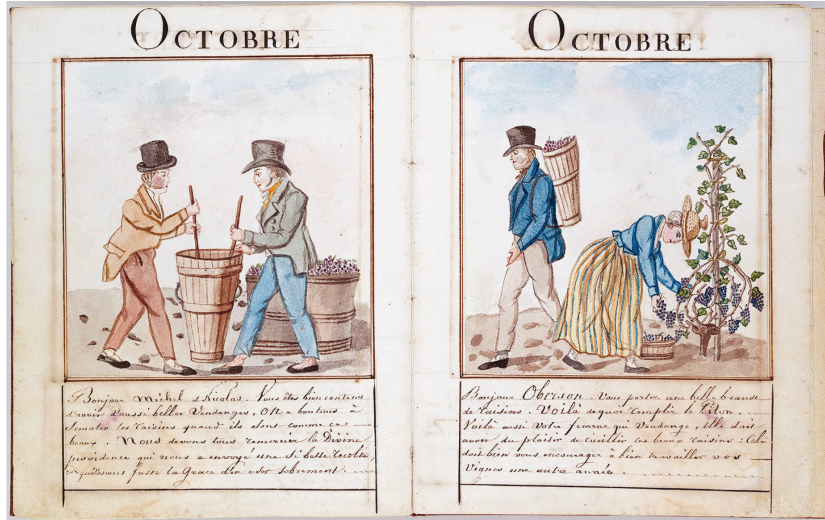 OCTOBRE
Bonjour Michel & Nicolas. Vous êtes bien contens
d'avoir d'aussi belles Vendanges. On a
les raisins quand ils sont comme ça
beaux. Nous devons tous remercier la Divine
providence qui nous a envoyé une si belle récolte,
fasse la Grace d'en user sobrement.
OCTOBRE
Bonjour Obrison. Vous portez une belle
de raisins. Voilà de quoi remplir le Pilon.
Voilà aussi Votre femme qui Vendange, Elle doit
avoir du plaisir de cueillir ces beaux raisins : Cela
doit bien vous encourager à bien travailler vos
Vignes une autre année.